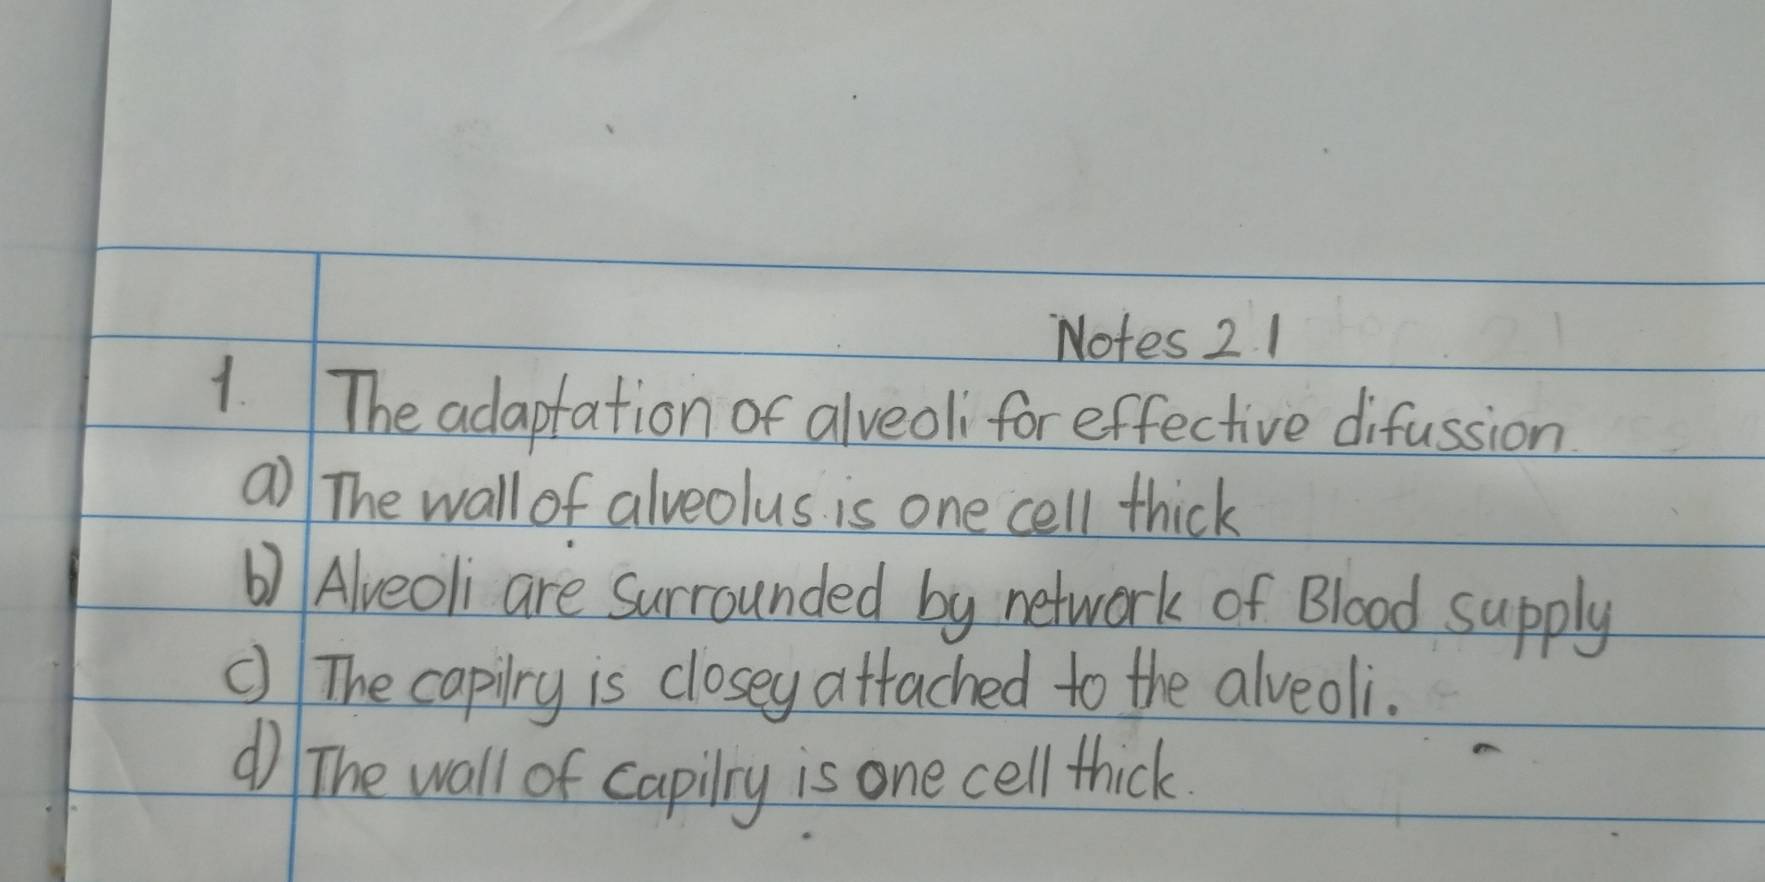 Notes 2.1
1. The adaptation of alveoli for effective difussion.
a) The wall of alveolus is one cell thick
b) Alveoli are surrounded by network of Blood supply
c) The capilry is closey attached to the alveoli.
d) The wall of capilry is one cell thick.